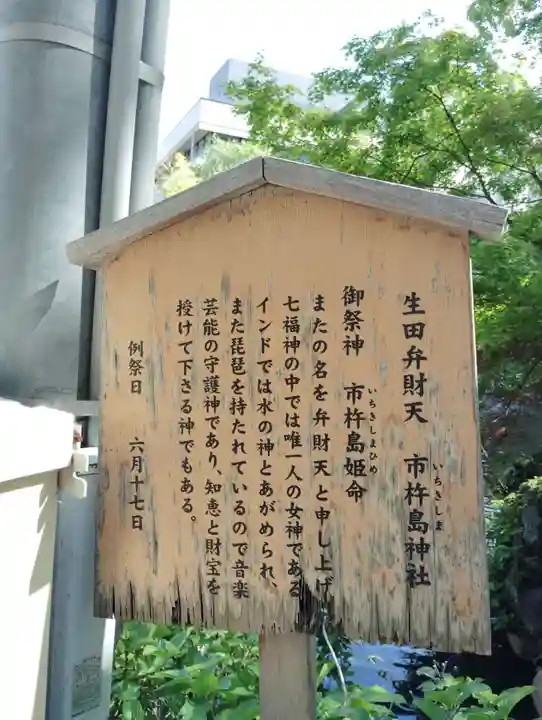 生田弁財天　市杵島神社
いちきしま
御祭神　市杵島姫命
いちきしまひめ
またの名を弁財天と申し上げ
七福神の中では唯一人の女神である
インドでは水の神とあがめられ、
また琵琶を持たれているので音楽
芸能の守護神であり、知恵と財宝を
授けて下さる神でもある。
例祭日　六月十七日